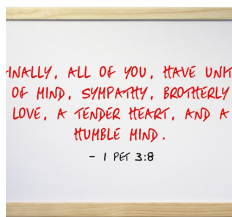 INALLY, ALL OF YOU, HAVE UNIT
OF MIND, SYMPATHY, BROTHERLY
LOVE, A TENDER HEART, AND A
HUMBLE MIND.
- 1 PET 3:8